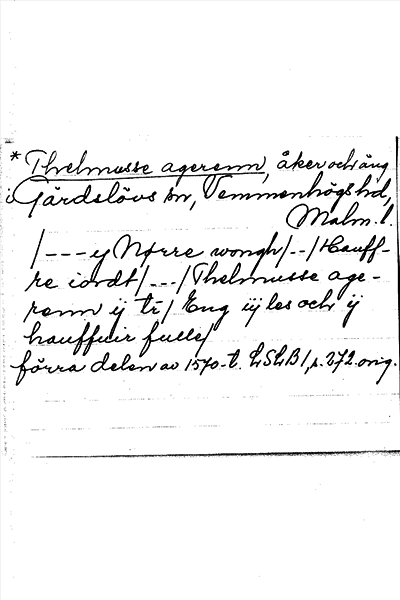 * Thelmusse agerenn, åker och äng
i Gärdslövs sn, Vemmenhögs hd,
Malm. l.
/---y Nørre wongh/--/Hauff-
re iordt/---/Thelmusse age-
renn ij tr/ Eng iij les och ij
hauffuir fulle/
förra delen av 1570-t. LSLB 1, s. 272. orig.